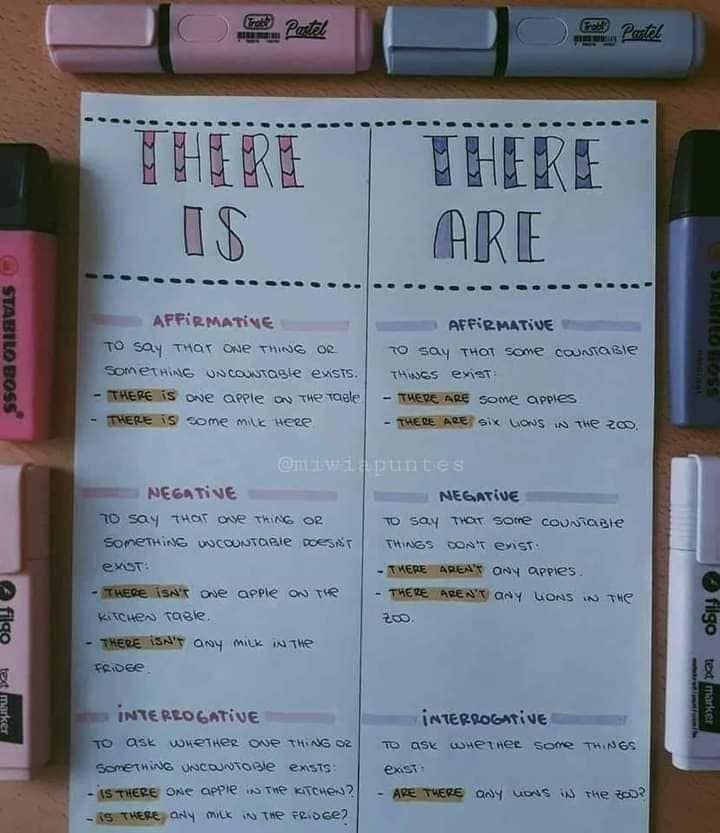 Trabi Pastel
Trabi Pastel
THERE
IS
AFFiRMATiVE
TO SAY THAT ONE THING OR
SOMETHING UNCOUNTABLE EXISTS.
- THERE iS ONE APPLE ON THE TABLE
- THERE iS SOME MILK HERE.
NEGATiVE
TO SAY THAT ONE THING OR
SOMETHING UNCOUNTABLE DOESN'T
EXIST:
- THERE iSN'T ONE APPLE ON THE
KITCHEN TABLE.
- THERE iSN'T ANY MILK IN THE
FRIDGE.
iNTERROGATiVE
TO ASK WHETHER ONE THING OR
SOMETHING UNCOUNTABLE EXISTS:
- IS THERE ONE APPLE IN THE KITCHEN?
- iS THERE ANY MILK IN THE FRIDGE?
THERE
ARE
AFFiRMATiVE
TO SAY THAT SOME COUNTABLE
THINGS EXIST:
- THERE ARE SOME APPLES
- THERE ARE SIX LIONS IN THE ZOO.
NEGATiVE
TO SAY THAT SOME COUNTABLE
THINGS DON'T EXIST:
- THERE AREN'T ANY APPLES.
- THERE AREN'T ANY LIONS IN THE
ZOO.
iNTERROGATiVE
TO ASK WHETHER SOME THINGS
EXIST:
- ARE THERE ANY LIONS IN THE ZOO?
@miwiapuntes
STABILO BOSS
STABILO BOSS
filgo text marker
filgo text marker